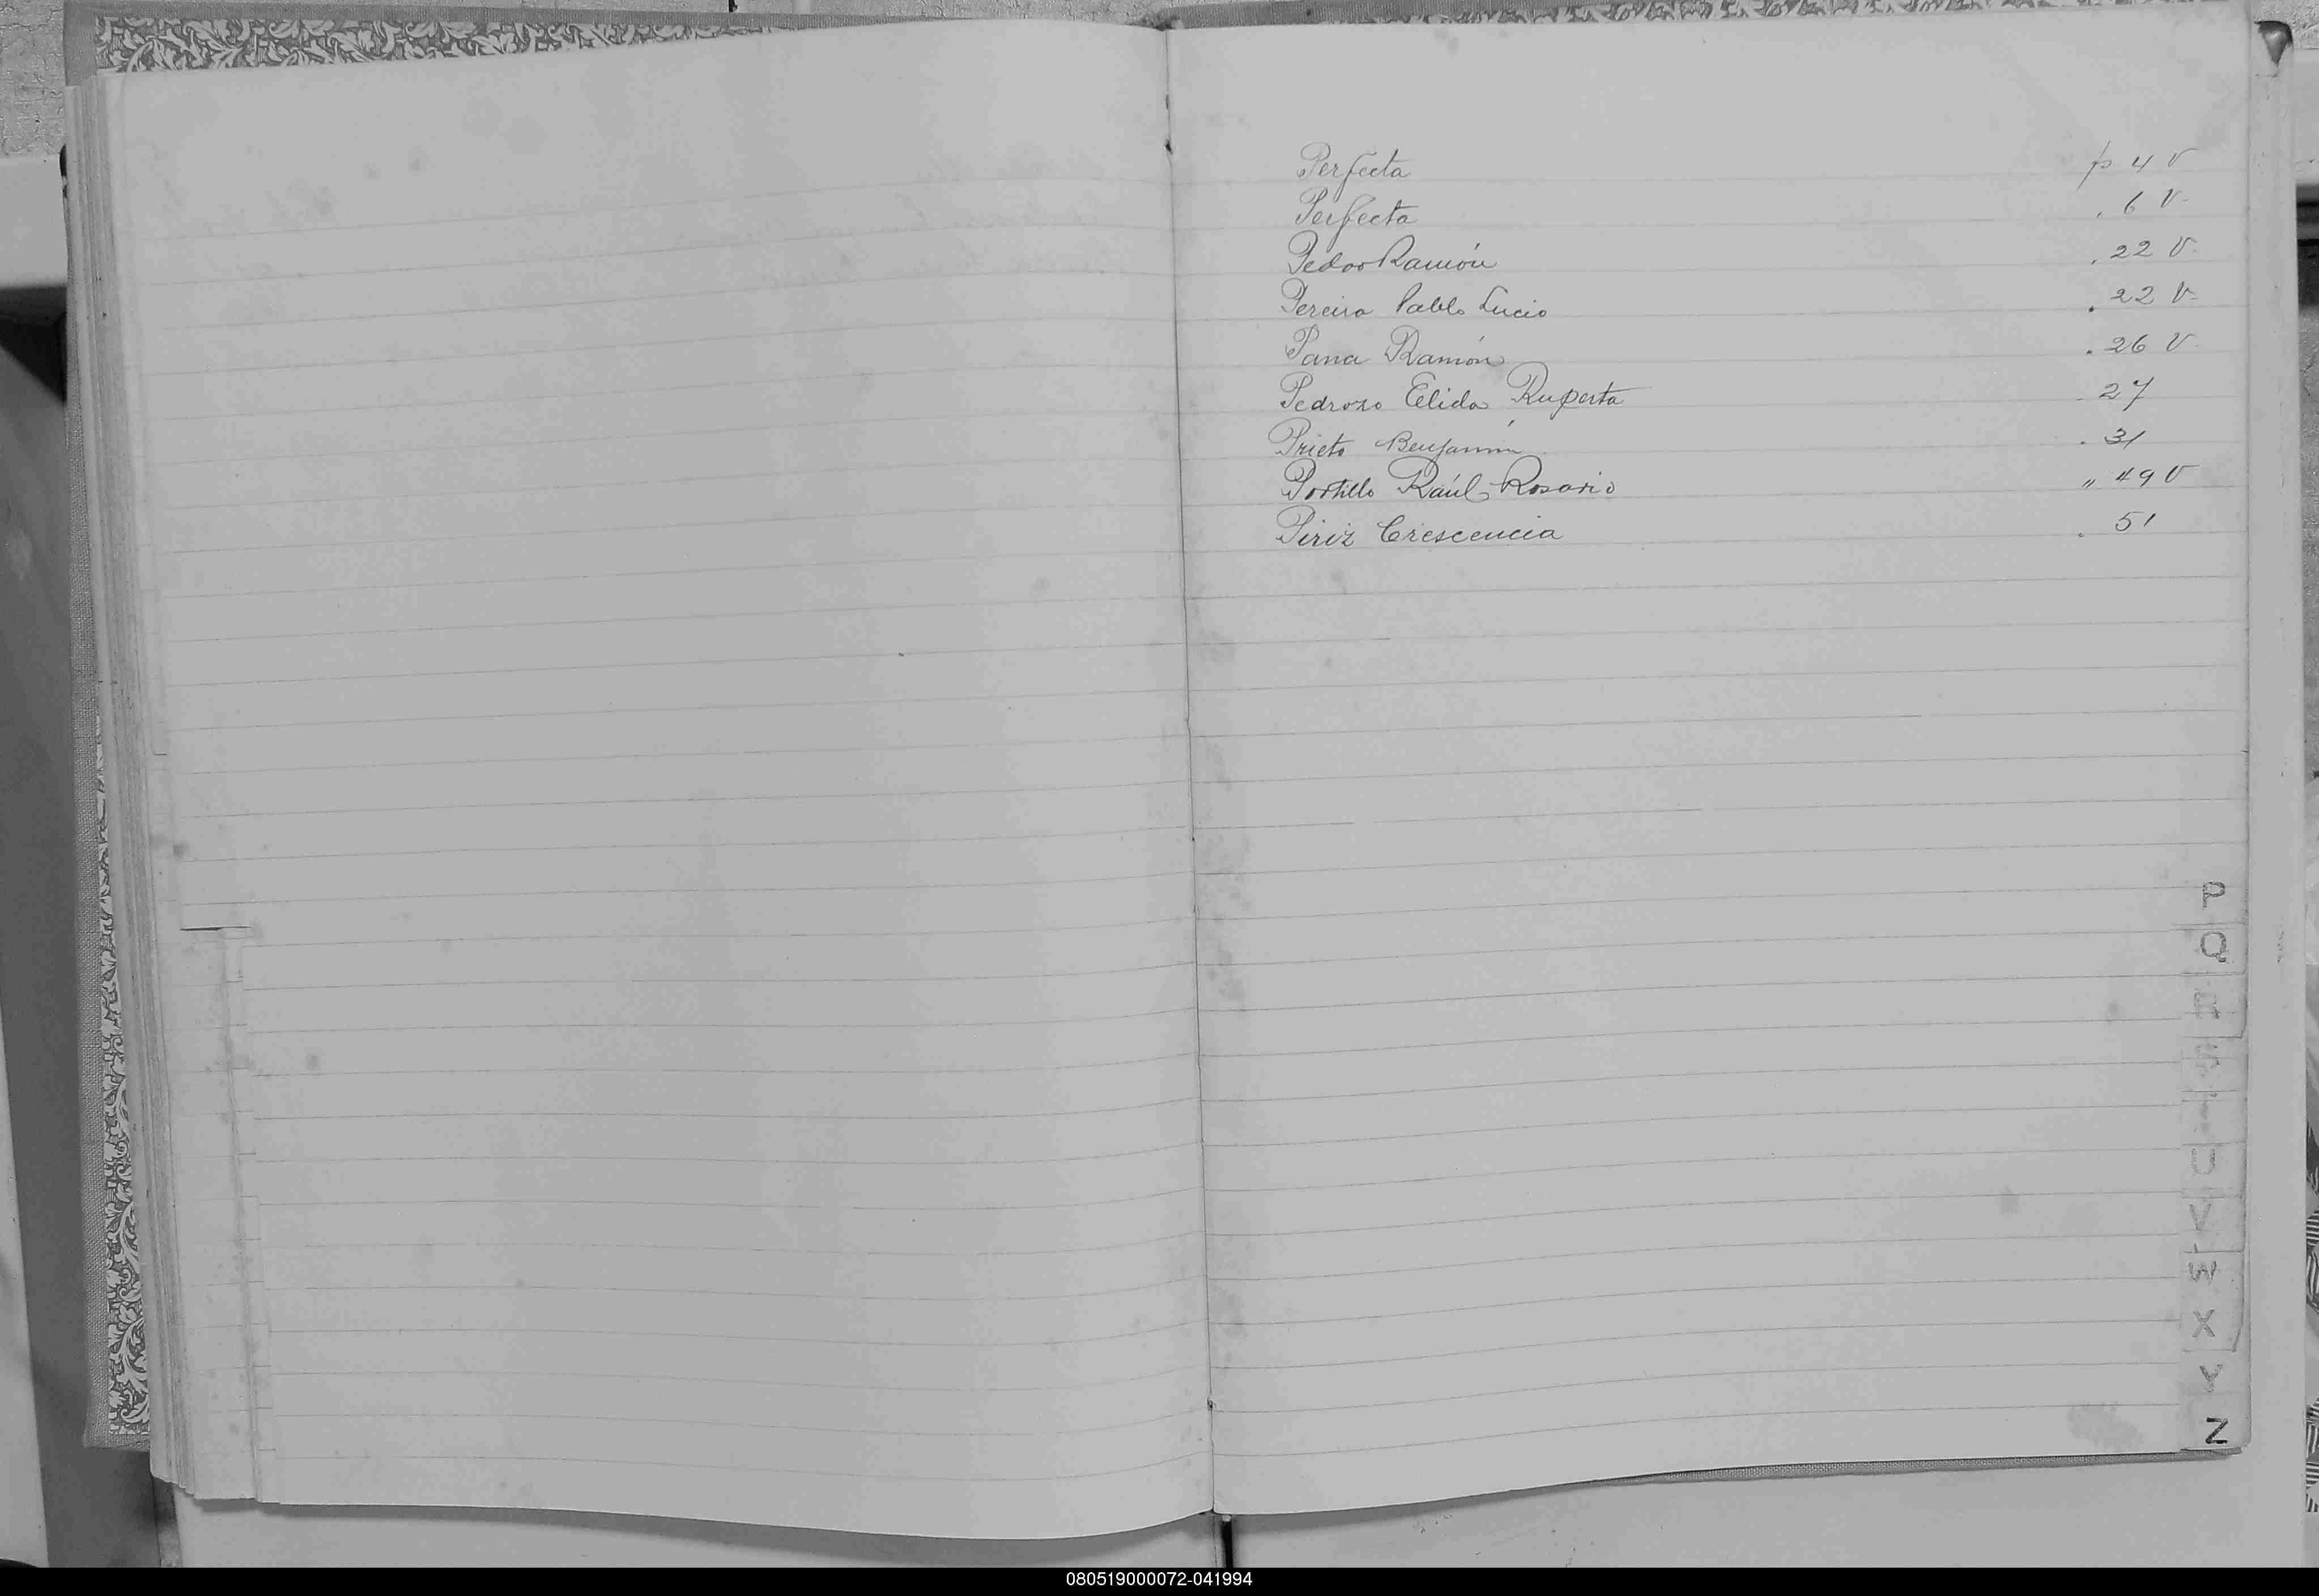 Perfecta p 4 v
Perfecta . 6 v.
Pedro Ramón . 22 v.
Pereira Pablo Lucio . 22 v.
Pana Ramón . 26 v.
Pedrozo Elida Ruperta . 27
Prieto Benjamín . 31
Portillo Raúl Rosario " 49 v
Piriz Crescencia . 51
P
Q
R
S
T
U
V
W
X
Y
Z
080519000072-041994